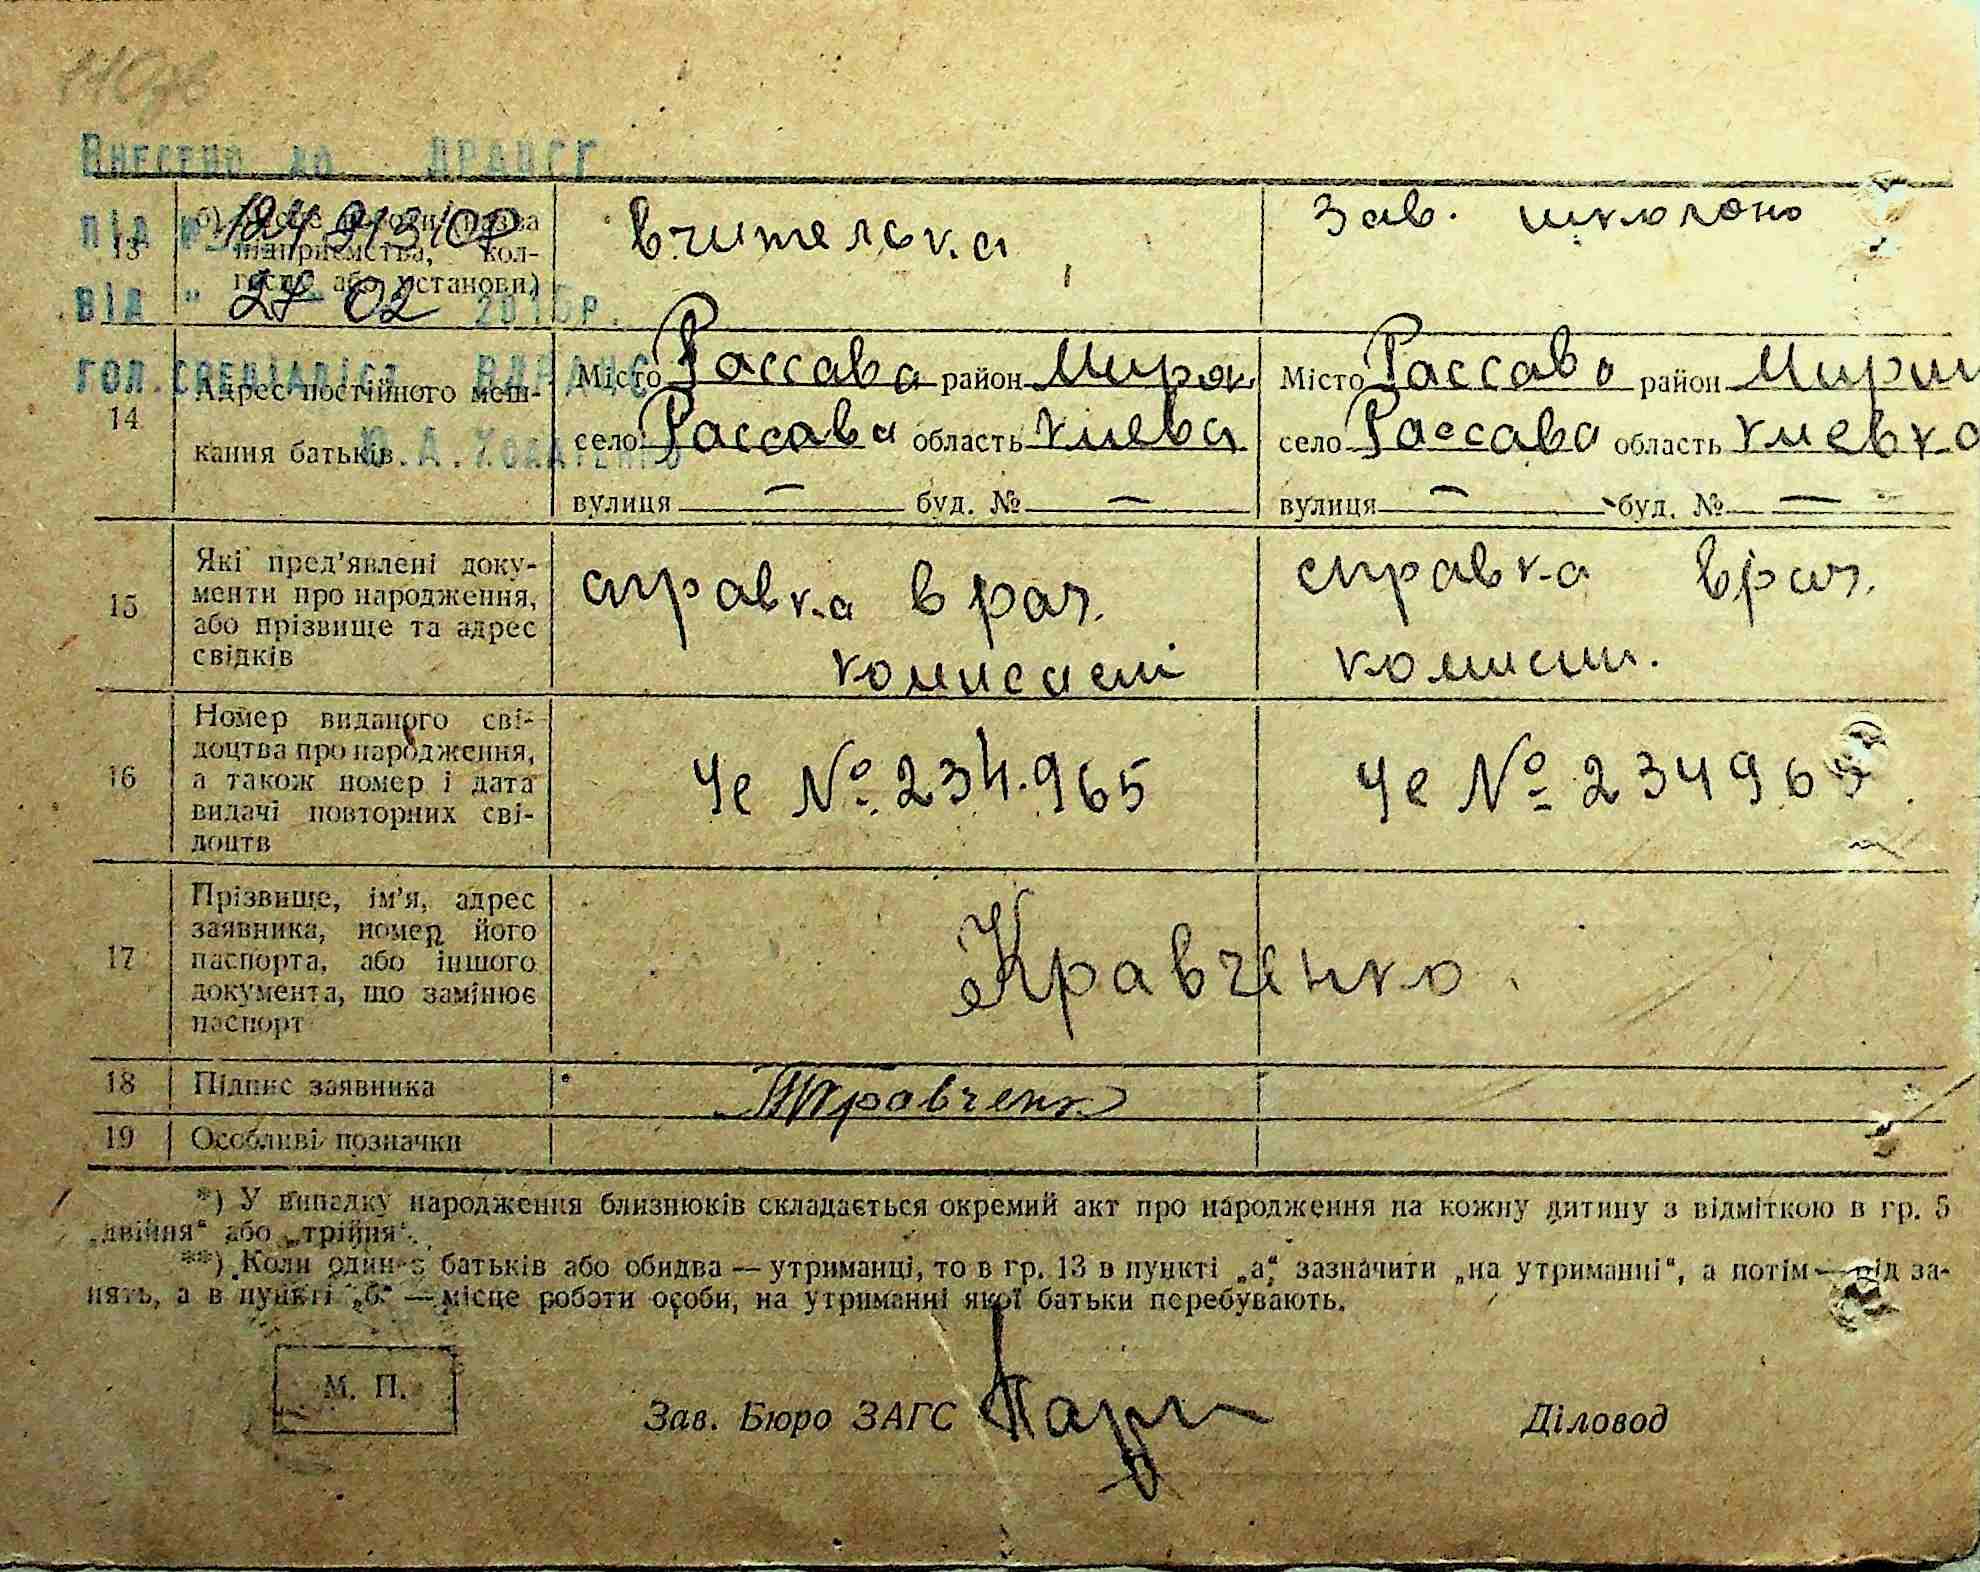 Внесено до ДРАЦСГ
під №
від " 27 02 2015р.
гол.спеціаліст ВДРАЦС
Ю.А.
13 б) місце роботи (назва підприємства, колгоспу або установи)
вчителька
Зав. школою
14 Адрес постійного мешкання батьків
Місто Рассава район
село Рассава область Киевка
вулиця — буд. № —
Місто Рассава район
село Рассава область Киевка
вулиця — буд. № —
15 Які пред'явлені доку-
менти про народження,
або прізвище та адрес
свідків
справка врач.
комисией
справка врач.
комисии.
16 Номер виданого сві-
доцтва про народження,
а також номер і дата
видачі повторних сві-
доцтв
Че № 234.965
Че № 234965
17 Прізвище, ім'я, адрес
заявника, номер його
паспорта, або іншого
документа, що замінює
паспорт
Кравченко
18 Підпис заявника
Кравченко
19 Особливі позначки
*) У випадку народження близнюків складається окремий акт про народження на кожну дитину з відміткою в гр. 5
„двійня“ або „трійня“.
**) Коли один з батьків або обидва — утриманці, то в гр. 13 в пункті „а“ зазначити „на утриманні“, а потім — рід за-
нять, а в пункті „б“ — місце роботи особи, на утриманні якої батьки перебувають.
М. П.
Зав. Бюро ЗАГС
Діловод